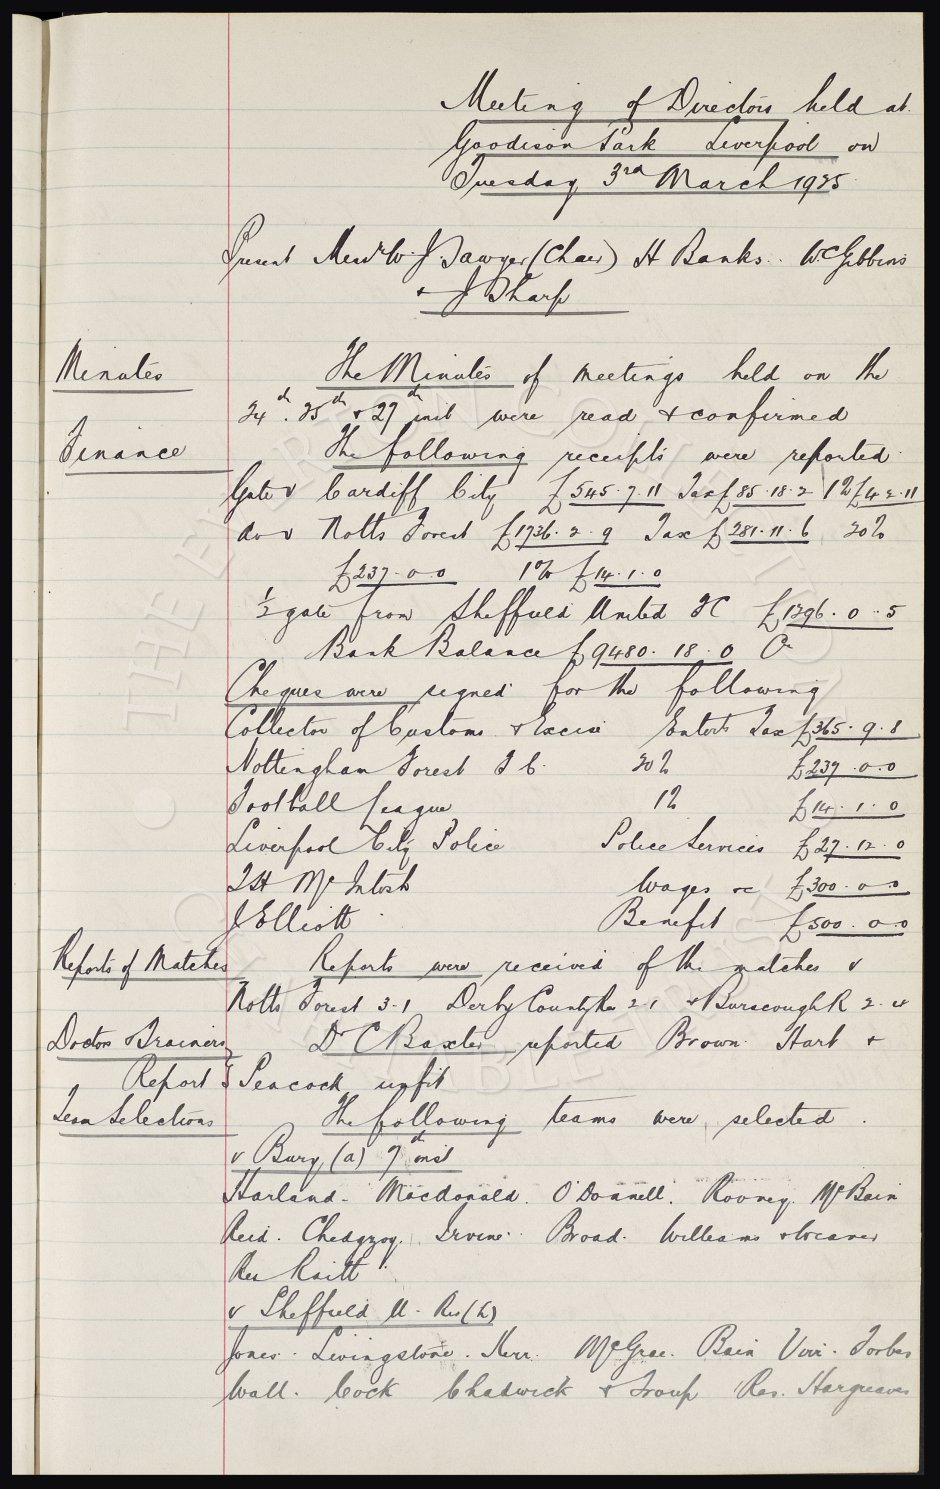 Meeting of Directors held at
Goodison Park Liverpool on
Tuesday 3rd March 1925
Present Messrs W. J Sawyer (Chair) H Banks. W.C. Gibbins
+ J Sharp
Minutes The Minutes of meetings held on the
24th. 25th + 27th inst were read + confirmed
Finance The following receipts were reported
Gate v Cardiff City £545.7.11 Tax £85.18.2 1% £4.2.11
do v Notts Forest £1736.2.9 Tax £281.11.6 20%
£237.0.0 1% £14.1.0
½ gate from Sheffield United FC £1396.0.5
Bank Balance £9480.18.0 Cr
Cheques were signed for the following
Collector of Customs & Excise Entert Tax £365.9.8
Nottingham Forest F C. 20% £237.0.0
Football League 1% £14.1.0
Liverpool City Police Police Services £27.12.0
T H McIntosh Wages &c £300.0.0
J Elliott Benefit £500.0.0
Reports of Matches Reports were received of the matches v
Notts Forest 3-1 Derby County 2-1 + Burscough R 2-4
Doctors & Trainers Dr C Baxter reported Brown Hart +
Reports Peacock unfit
Team Selections The following teams were selected.
v Bury (a) 7th inst
Harland. Macdonald. O'Donnell. Rooney. McBain
Reid. Chedgzoy. Irvine. Broad. Williams + Weaver
Res Raitt
v Sheffield U. Res (h)
Jones. Livingstone. Kerr. McGrae. Bain Virr. Forbes
Wall. Cock Chadwick + Troup Res. Hargreaves
THE EVERTON COLLECTION
CHARITABLE TRUST